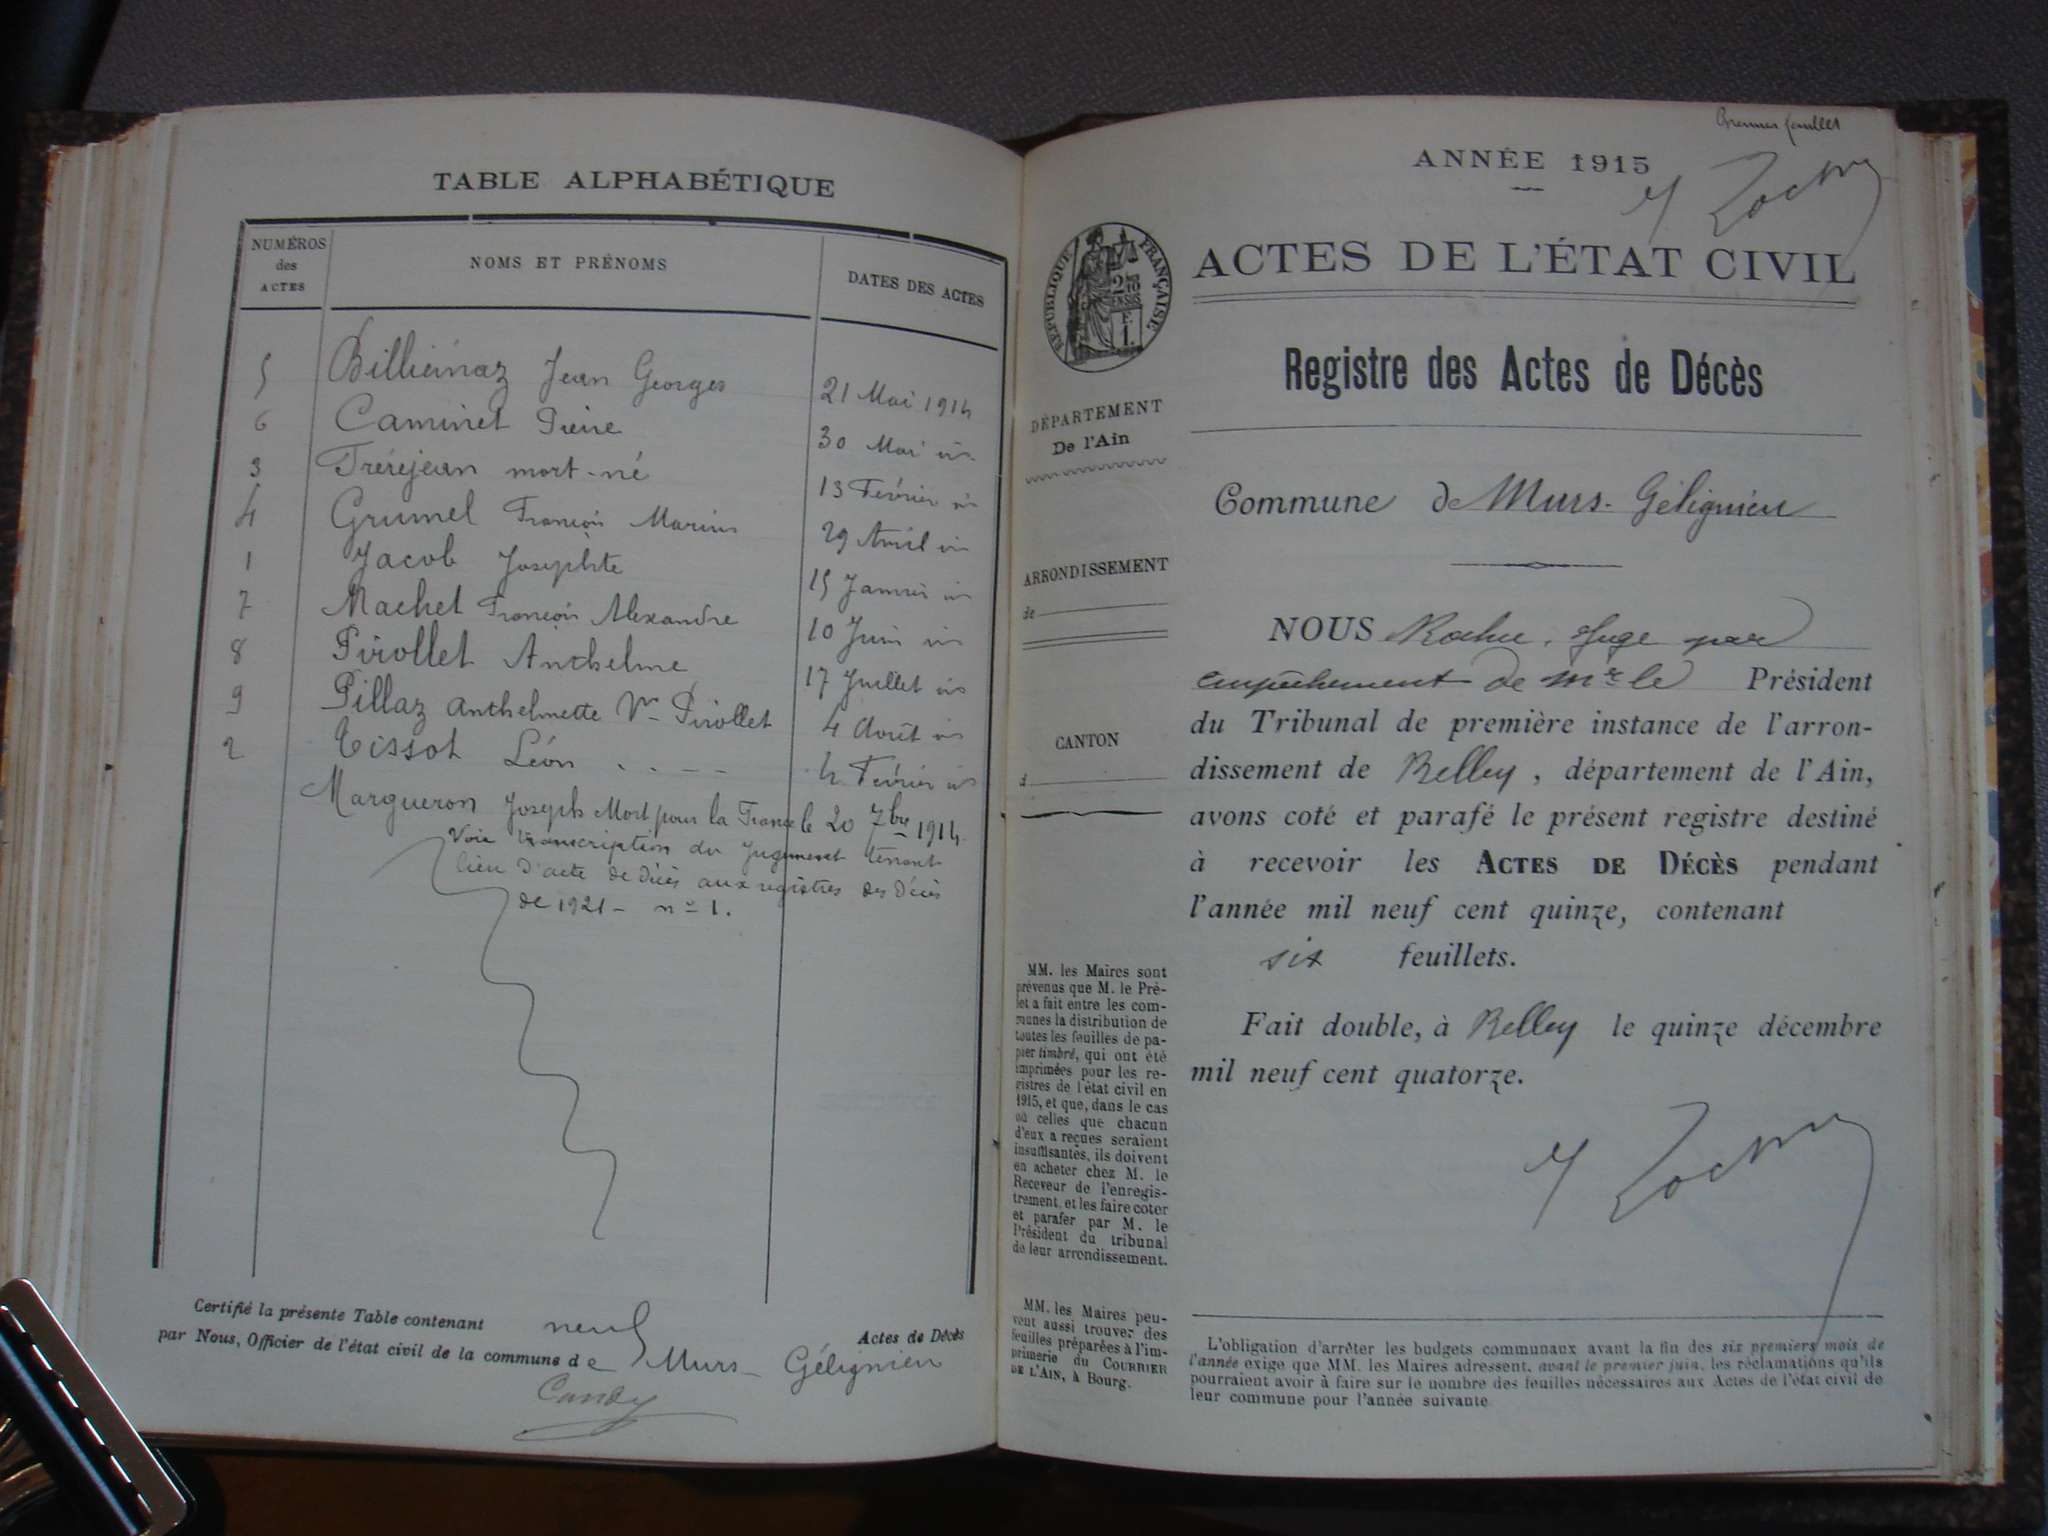 TABLE ALPHABÉTIQUE
NUMÉROS des ACTES
NOMS ET PRÉNOMS
DATES DES ACTES
5 Billiémaz Jean Georges 21 Mai 1914
6 Caminet Pierre 30 Mai
3 Frérejean mort-né 13 Février
4 Grumel François Marius 29 Avril
1 Jacob Josephte 15 Janvier
7 Machet François Alexandre 10 Juin
8 Pirollet Anthelme 17 Juillet
9 Pillaz Anthelmette Vve Pirollet 4 Août
2 Tissot Léon 4 Février
Margueron Joseph Mort pour la France le 20 7bre 1914
Voir transcription du jugement tenant
lieu d'acte de décès aux registres des Décès
de 1921 - n° 1.
Certifié la présente Table contenant neuf Actes de Décès
par Nous, Officier de l'état civil de la commune de Murs-Gélignieu
Candy
Premier feuillet
ANNÉE 1915
RÉPUBLIQUE FRANÇAISE
ACTES DE L'ÉTAT CIVIL
Registre des Actes de Décès
DÉPARTEMENT
De l'Ain
Commune de Murs-Gélignieu
ARRONDISSEMENT
de
CANTON
d
NOUS Rochu, Juge par
empêchement de Mr le Président
du Tribunal de première instance de l'arron-
dissement de Belley, département de l'Ain,
avons coté et parafé le présent registre destiné
à recevoir les ACTES DE DÉCÈS pendant
l'année mil neuf cent quinze, contenant
six feuillets.
Fait double, à Belley le quinze décembre
mil neuf cent quatorze.
MM. les Maires sont
prévenus que M. le Pré-
fet a fait entre les com-
munes la distribution de
toutes les feuilles de pa-
pier timbré, qui ont été
imprimées pour les re-
gistres de l'état civil en
1915, et que, dans le cas
où celles que chacun
d'eux a reçues seraient
insuffisantes, ils doivent
en acheter chez M. le
Receveur de l'enregis-
trement, et les faire coter
et parafer par M. le
Président du tribunal
de leur arrondissement.
MM. les Maires peu-
vent aussi trouver des
feuilles préparées à l'im-
primerie du COURRIER
DE L'AIN, à Bourg.
L'obligation d'arrêter les budgets communaux avant la fin des six premiers mois de
l'année exige que MM. les Maires adressent, avant le premier juin, les réclamations qu'ils
pourraient avoir à faire sur le nombre des feuilles nécessaires aux Actes de l'état civil de
leur commune pour l'année suivante